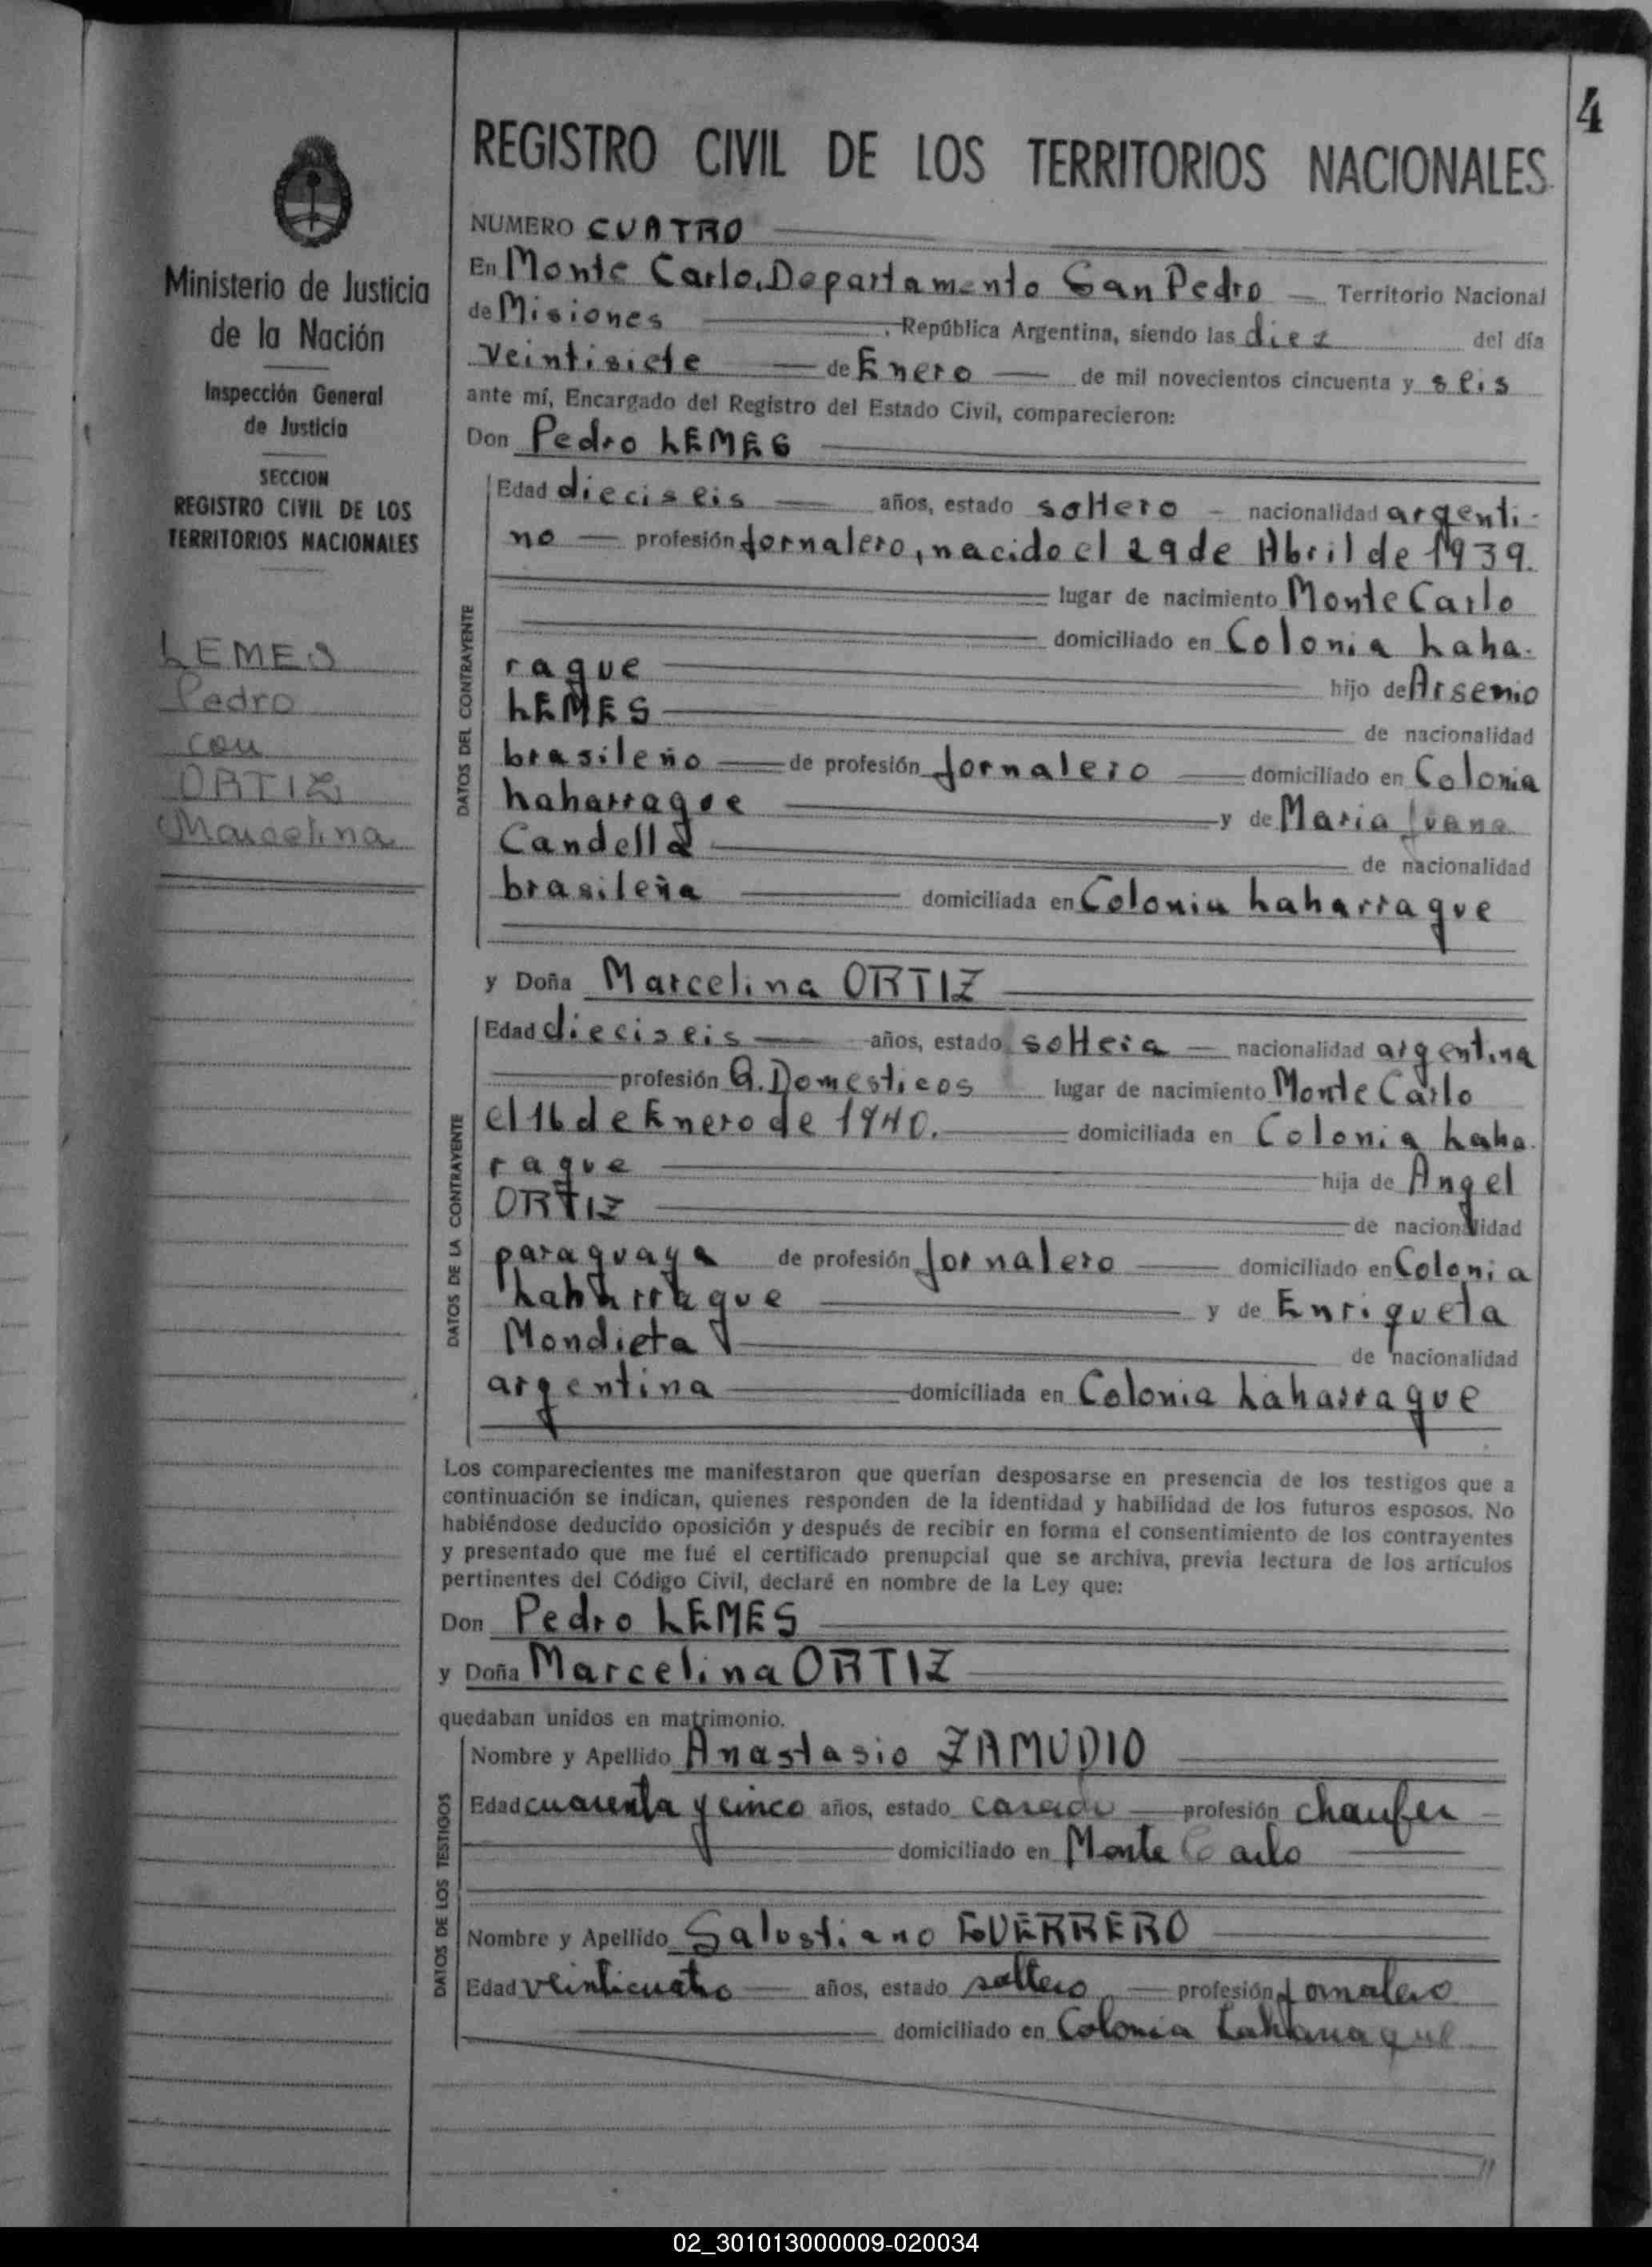 4
REGISTRO CIVIL DE LOS TERRITORIOS NACIONALES
Ministerio de Justicia
de la Nación
Inspección General
de Justicia
SECCION
REGISTRO CIVIL DE LOS
TERRITORIOS NACIONALES
LEMES
Pedro
con
ORTIZ
Marcelina
NUMERO CUATRO
En Monte Carlo, Departamento San Pedro Territorio Nacional
de Misiones , República Argentina, siendo las diez del día
veintisiete de Enero de mil novecientos cincuenta y seis
ante mí, Encargado del Registro del Estado Civil, comparecieron:
Don Pedro LEMES
DATOS DEL CONTRAYENTE
Edad dieciseis años, estado soltero nacionalidad argenti-
no profesión jornalero, nacido el 29 de Abril de 1939.
lugar de nacimiento Monte Carlo
domiciliado en Colonia Laha-
rague hijo de Arsenio
LEMES de nacionalidad
brasileño de profesión jornalero domiciliado en Colonia
Laharrague y de Maria Juana
Candella de nacionalidad
brasileña domiciliada en Colonia Laharrague
y Doña Marcelina ORTIZ
DATOS DE LA CONTRAYENTE
Edad dieciseis años, estado soltera nacionalidad argentina
profesión Q. Domesticos lugar de nacimiento Monte Carlo
el 16 de Enero de 1940. domiciliada en Colonia Laha-
rague hija de Angel
ORTIZ de nacionalidad
paraguaya de profesión jornalero domiciliado en Colonia
Laharrague y de Enriqueta
Mondieta de nacionalidad
argentina domiciliada en Colonia Laharrague
Los comparecientes me manifestaron que querían desposarse en presencia de los testigos que a
continuación se indican, quienes responden de la identidad y habilidad de los futuros esposos. No
habiéndose deducido oposición y después de recibir en forma el consentimiento de los contrayentes
y presentado que me fué el certificado prenupcial que se archiva, previa lectura de los artículos
pertinentes del Código Civil, declaré en nombre de la Ley que:
Don Pedro LEMES
y Doña Marcelina ORTIZ
quedaban unidos en matrimonio.
DATOS DE LOS TESTIGOS
Nombre y Apellido Anastasio ZAMUDIO
Edad cuarenta y cinco años, estado casado profesión chaufer
domiciliado en Monte Carlo
Nombre y Apellido Salustiano GUERRERO
Edad veinticuatro años, estado soltero profesión jornalero
domiciliado en Colonia Laharrague
02_301013000009-020034